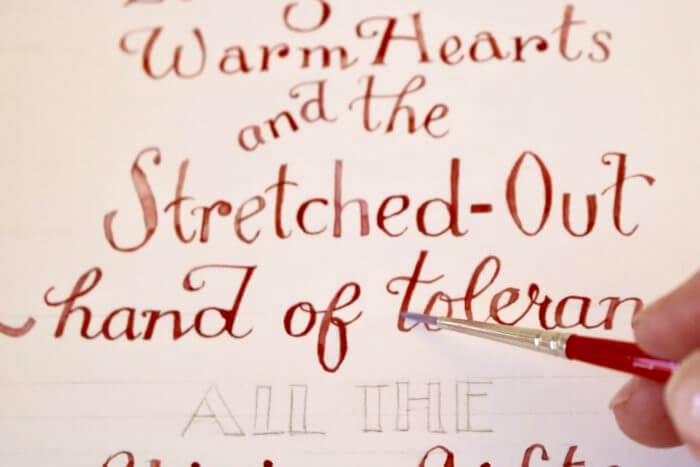 Warm Hearts
and the
Stretched-Out
hand of toleran
ALL THE